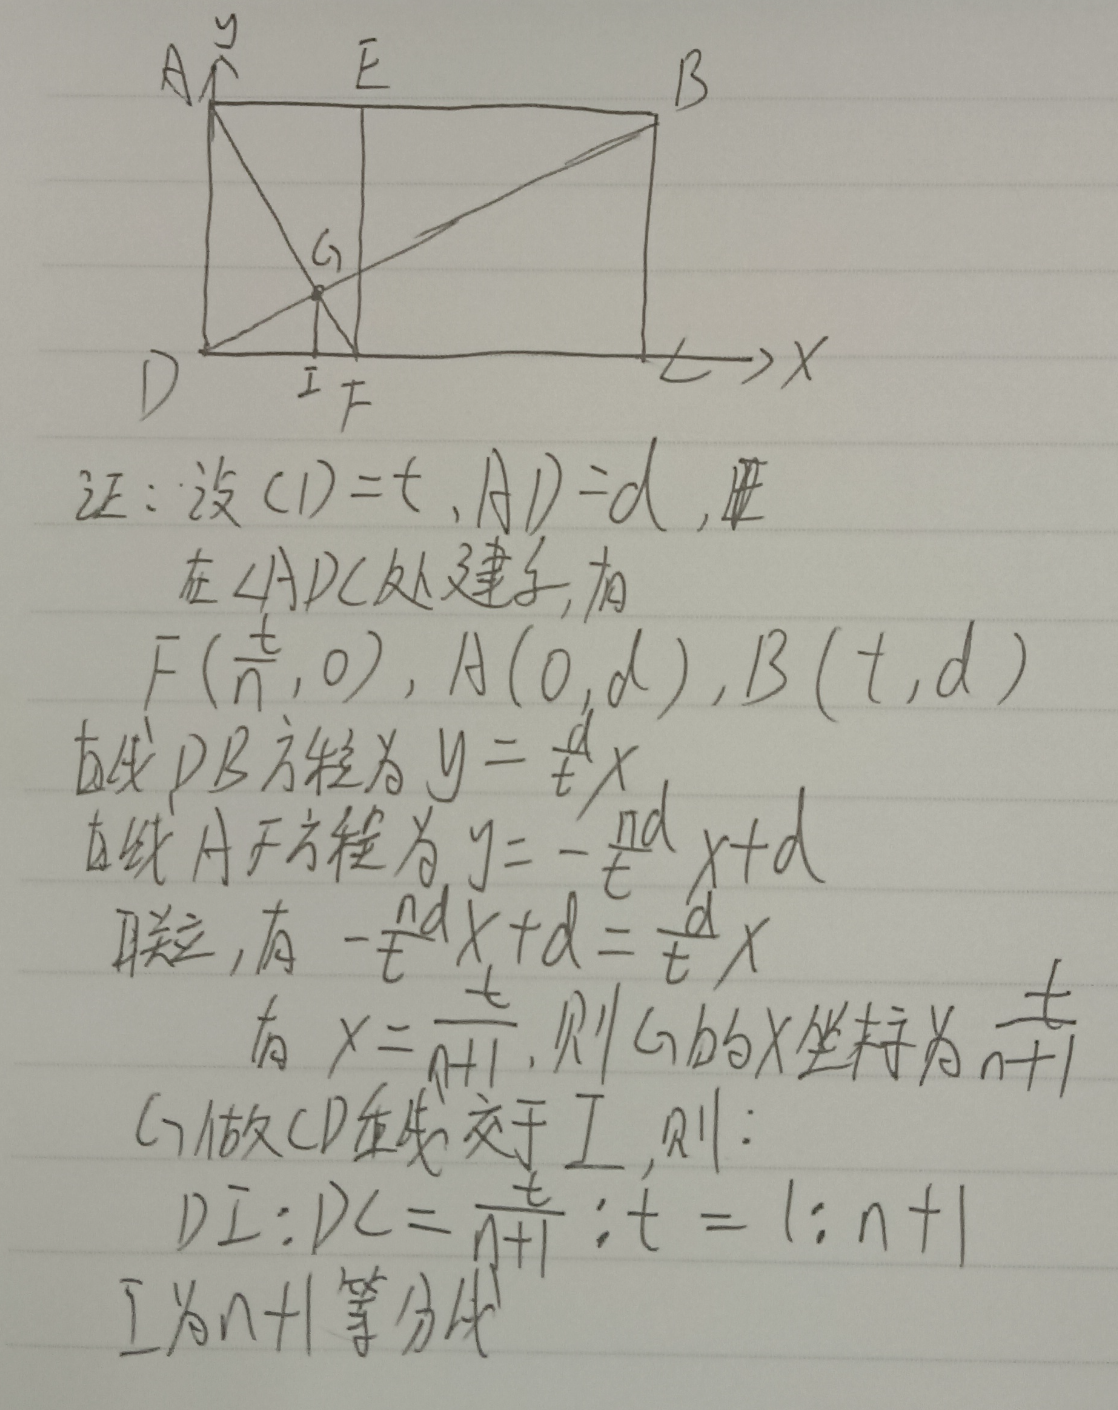 y
A E B
G
D I F C x
证:设CD=t、AD=d,
在∠ADC处建系,有
F(t/n,0),A(0,d),B(t,d)
直线DB方程为y=d/t x
直线AF方程为y=-nd/t x+d
联立,有 -nd/t x+d=d/t x
有 x=t/n+1,则G的x坐标为t/n+1
G做CD垂线交于I,则:
DI:DC=t/n+1:t=1:n+1
I为n+1等分线